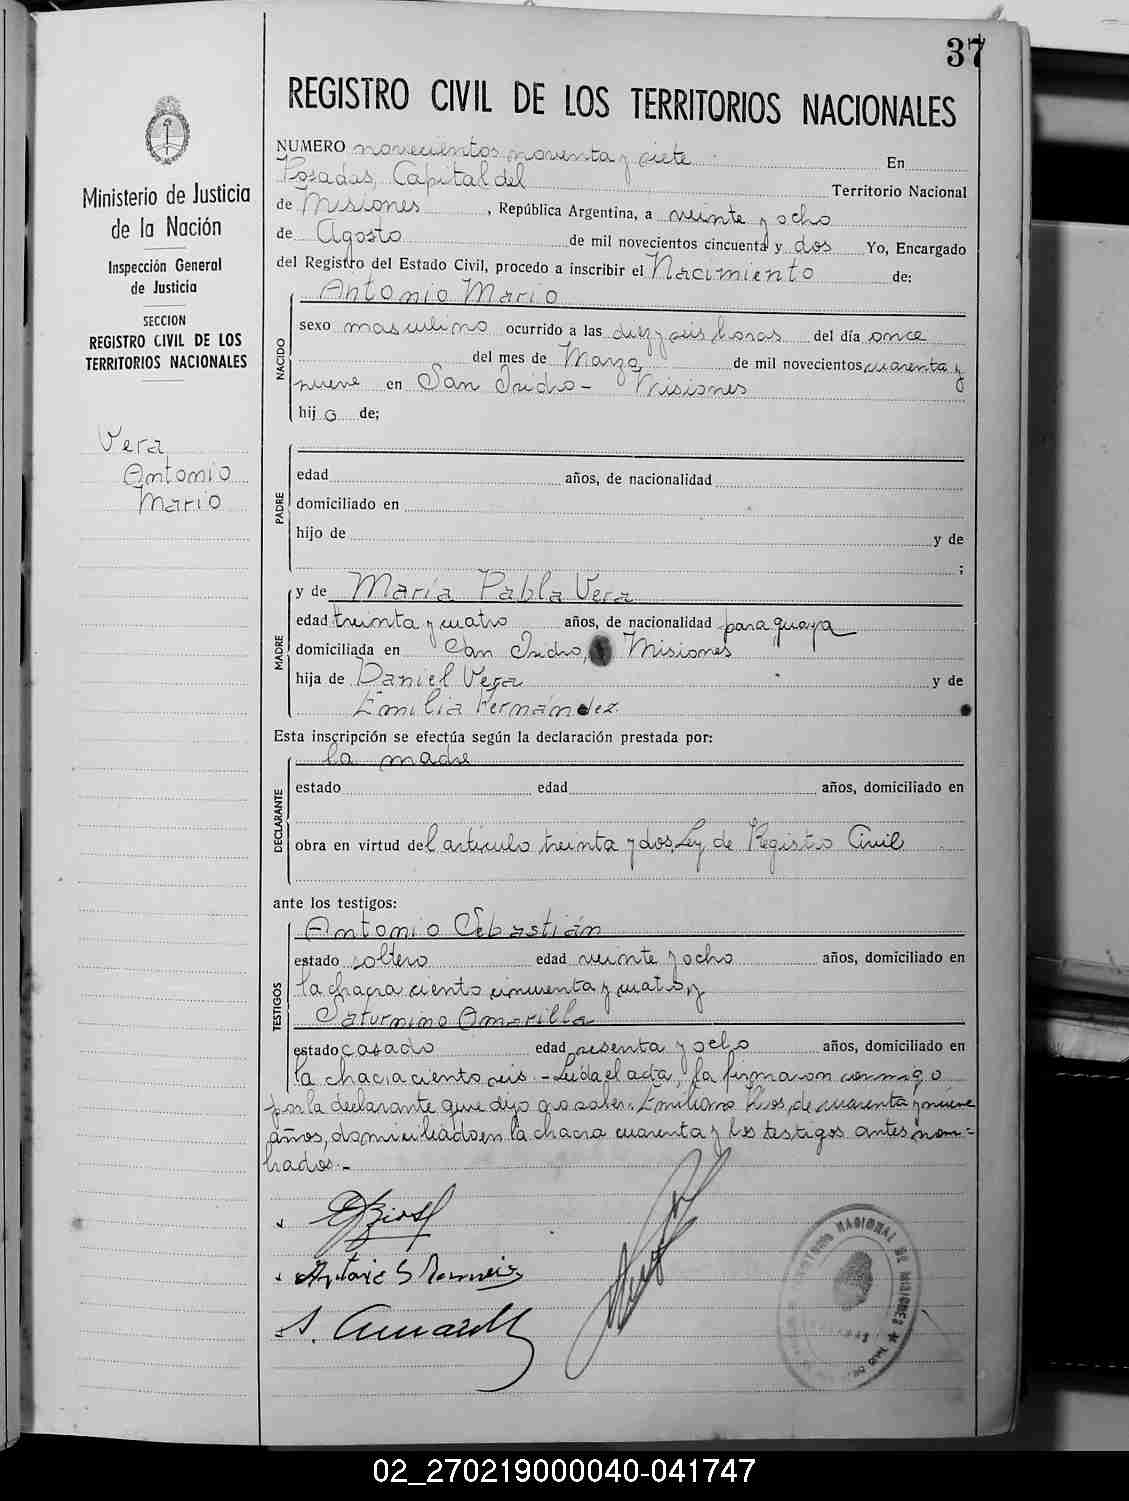 37
REGISTRO CIVIL DE LOS TERRITORIOS NACIONALES
Ministerio de Justicia
de la Nación
Inspección General
de Justicia
SECCION
REGISTRO CIVIL DE LOS
TERRITORIOS NACIONALES
Vera
Antonio
Mario
NUMERO novecientos noventa y siete En
Posadas, Capital del Territorio Nacional
de Misiones, República Argentina, a veinte y ocho
de Agosto de mil novecientos cincuenta y dos Yo, Encargado
del Registro del Estado Civil, procedo a inscribir el Nacimiento de:
Antonio Mario
NACIDO
sexo masculino ocurrido a las diez y seis horas del día once
del mes de Marzo de mil novecientos cuarenta y
nueve en San Isidro - Misiones
hijo de;
PADRE
edad años, de nacionalidad
domiciliado en
hijo de y de
;
y de María Pabla Vera
MADRE
edad treinta y cuatro años, de nacionalidad paraguaya
domiciliada en San Isidro, Misiones
hija de Daniel Vera y de
Emilia Fernández
Esta inscripción se efectúa según la declaración prestada por:
la madre
DECLARANTE
estado edad años, domiciliado en
obra en virtud del artículo treinta y dos, Ley de Registro Civil
ante los testigos:
Antonio Sebastián
TESTIGOS
estado soltero edad veinte y ocho años, domiciliado en
la chacra ciento cincuenta y cuatro, y
Saturnino Amarilla
estado casado edad sesenta y ocho años, domiciliado en
la chacra ciento seis.- Leída el acta, la firmaron conmigo
por la declarante que dijo no saber, Emiliano de cuarenta y nueve
años, domiciliado en la chacra cuarenta y los testigos antes nom-
brados.-
S. Amarilla
TERRITORIO NACIONAL DE MISIONES
02_270219000040-041747